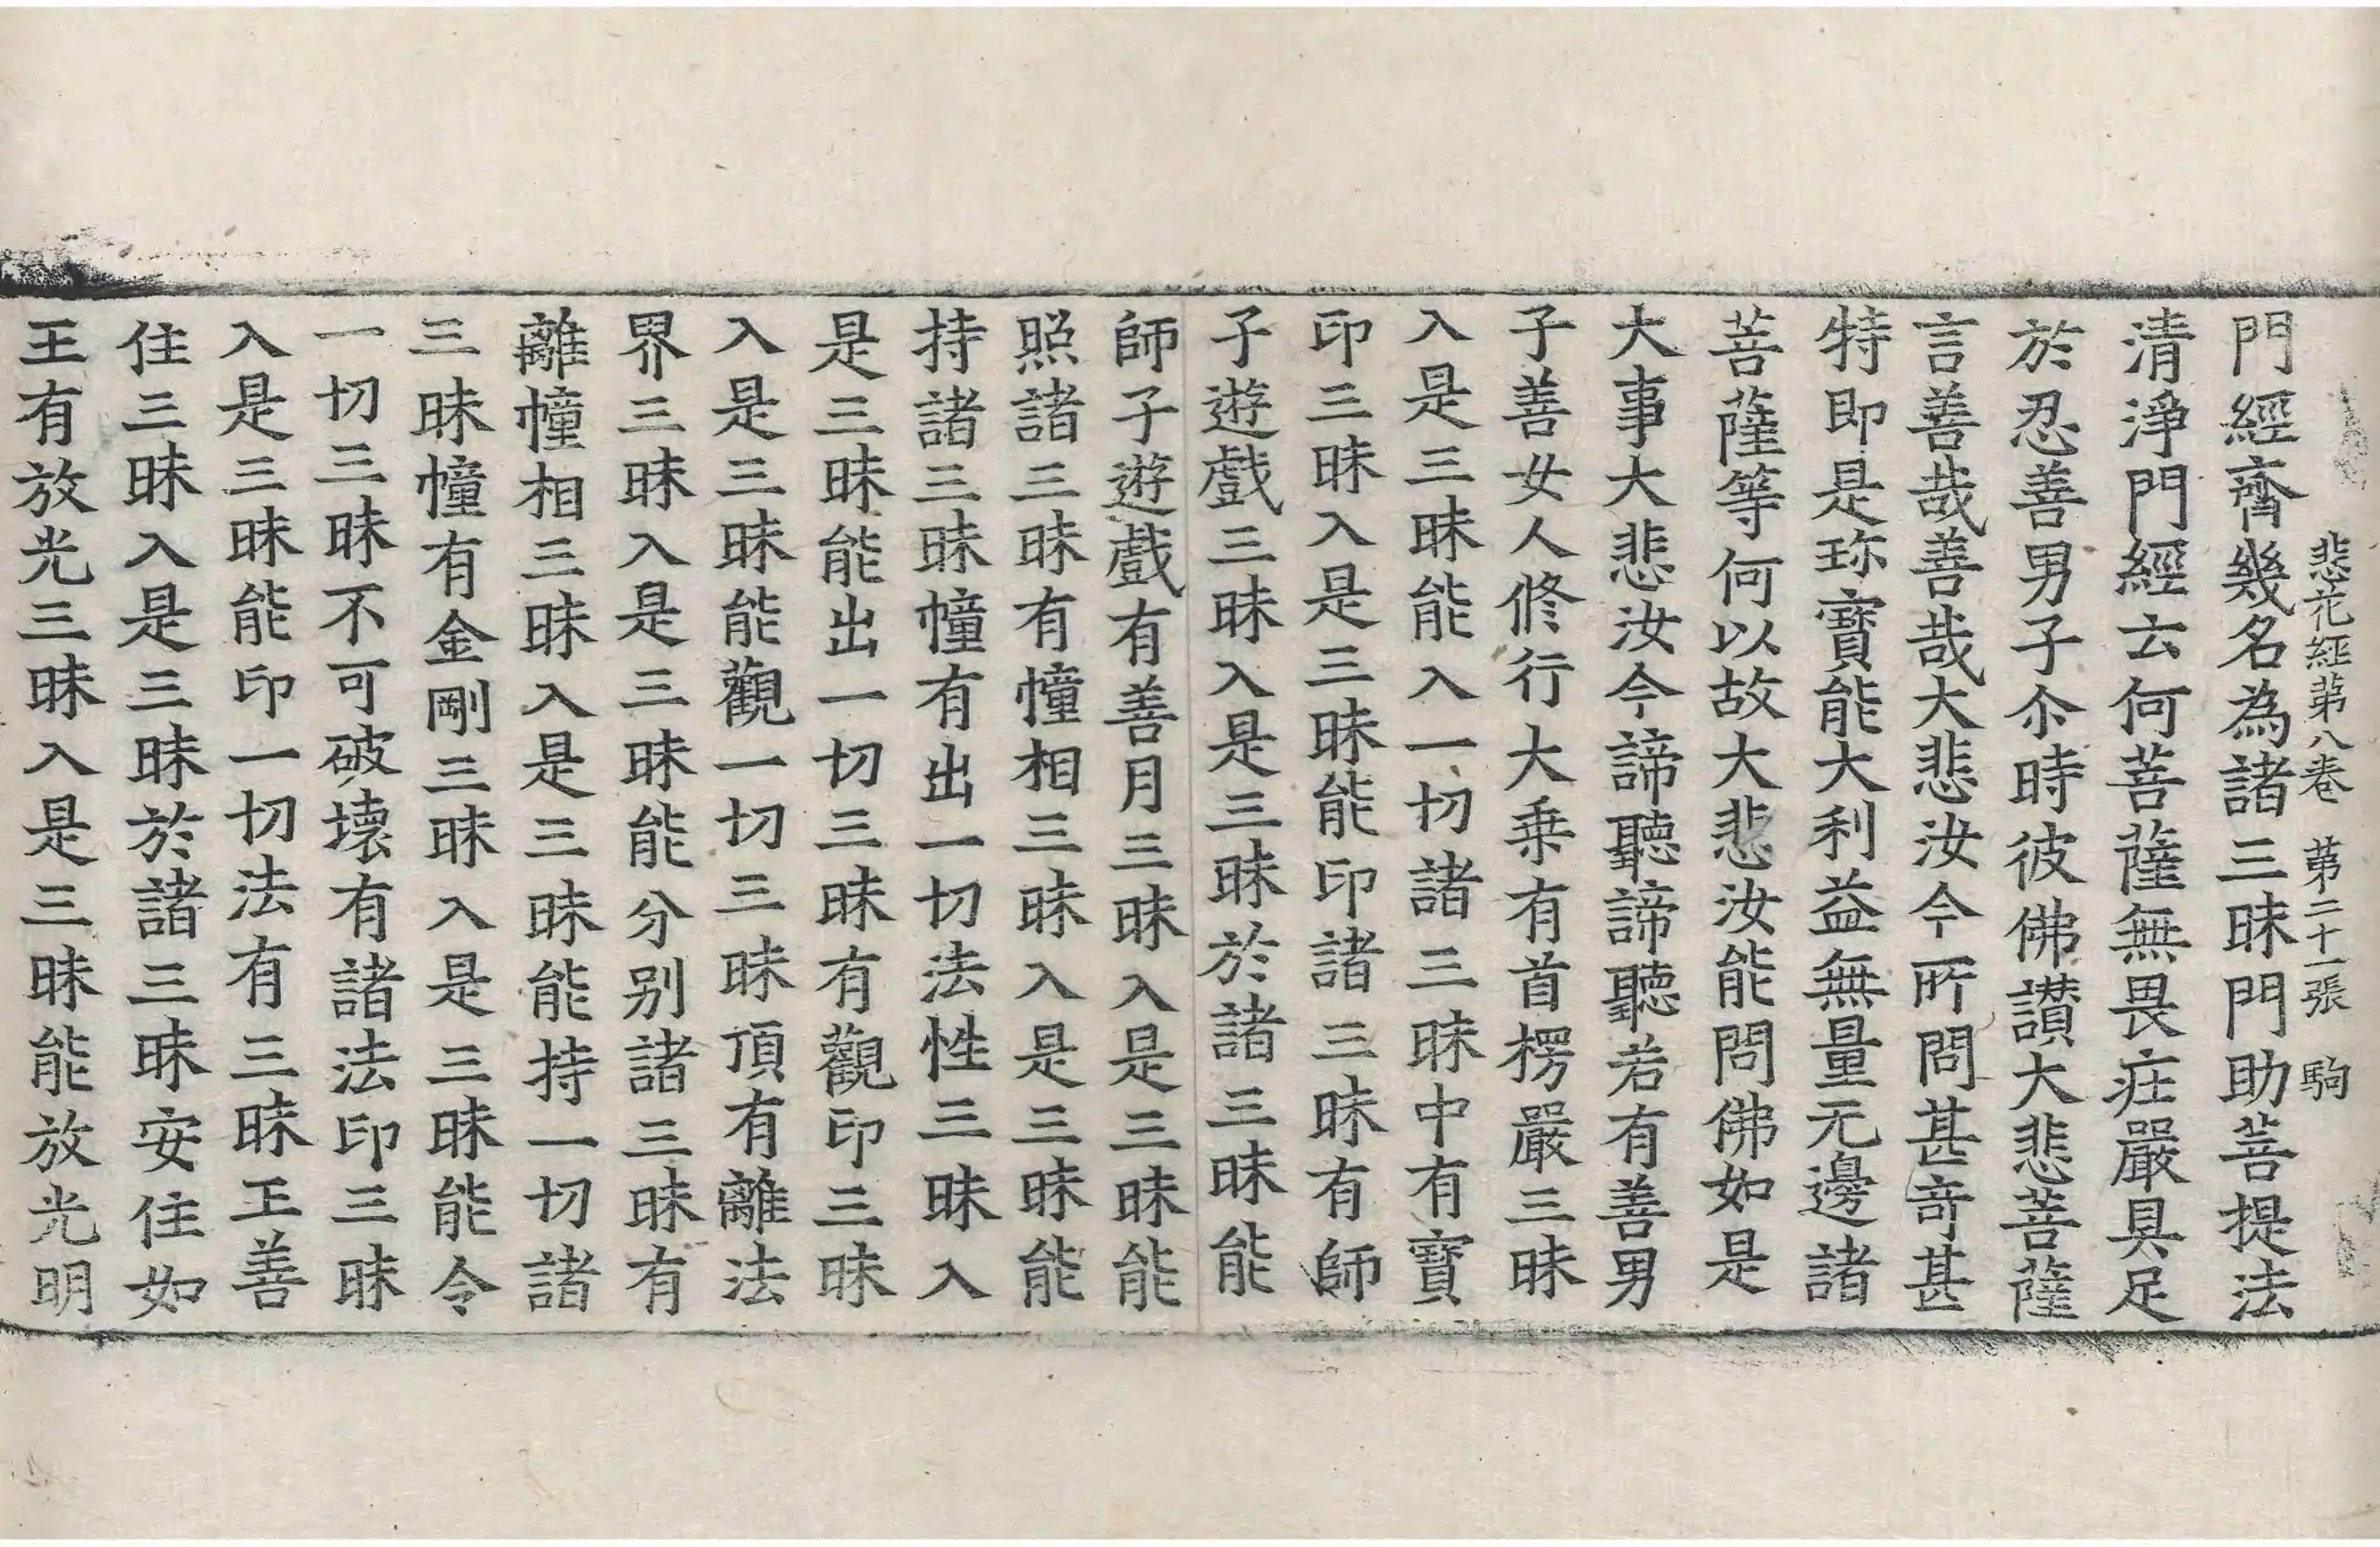 悲花經第八卷 第二十一張 駒
門經齊幾名為諸三昧門助菩提法
清淨門經云何菩薩無畏庄嚴具足
於忍善男子尒時彼佛讃大悲菩薩
言善哉善哉大悲汝今所問甚奇甚
特即是珎寶能大利益無量无邊諸
菩薩等何以故大悲汝能問佛如是
大事大悲汝今諦聽諦聽若有善男
子善女人修行大乗有首楞嚴三昧
入是三昧能入一切諸三昧中有寶
印三昧入是三昧能印諸三昧有師
子遊戲三昧入是三昧於諸三昧能
師子遊戲有善月三昧入是三昧能
照諸三昧有幢相三昧入是三昧能
持諸三昧幢有出一切法性三昧入
是三昧能出一切三昧有觀印三昧
入是三昧能觀一切三昧頂有離法
界三昧入是三昧能分别諸三昧有
離幢相三昧入是三昧能持一切諸
三昧幢有金剛三昧入是三昧能令
一切三昧不可破壞有諸法印三昧
入是三昧能印一切法有三昧王善
住三昧入是三昧於諸三昧安住如
王有放光三昧入是三昧能放光明